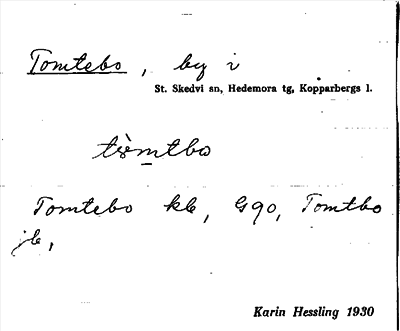 Tomtebo, by i
St. Skedvi sn, Hedemora tg, Kopparbergs l.
tòmtbo
Tomtebo kb, G90, Tomtbo
jb,
Karin Hessling 1930